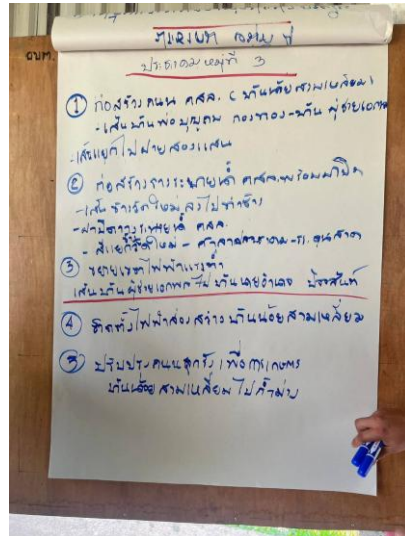 อบต.
ประชาคมหมู่ที่ 3
① ก่อสร้างถนน คสล. (บ้านน้อยสามเหลี่ยม)
- เส้นบ้านพ่อบุญถม กองทอง - บ้าน ผู้ช่วยเอกพล
- เส้นแยกไปฝายสองแสน
② ก่อสร้างรางระบายน้ำ คสล. พร้อมฝาปิด
- เส้น ข้างวัดใหม่ ลงไปท่าช้าง
- ฝาปิดรางระบายน้ำ คสล.
- สี่แยกวัดใหม่ - ศาลากลางบ้าน
③ ขยายเขตไฟฟ้าแรงต่ำ
เส้นบ้านผู้ช่วยเอกพลไปบ้านนายอำนาจ ประสันท์
④ ติดตั้งไฟฟ้าส่องสว่าง บ้านน้อยสามเหลี่ยม
⑤ ปรับปรุงถนนลูกรัง เพื่อการเกษตร
บ้านน้อยสามเหลี่ยมไป